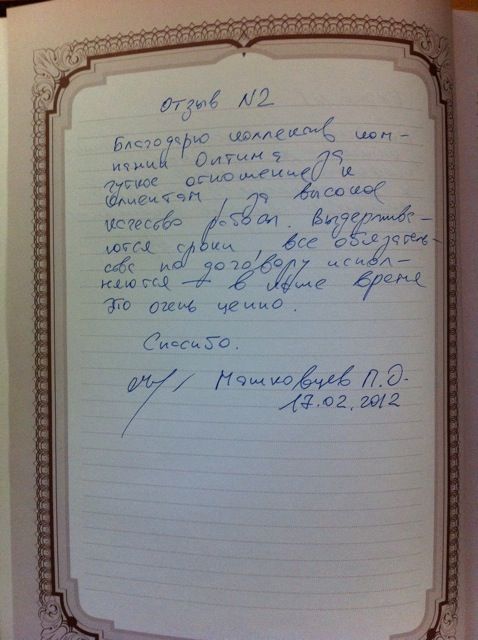 отзыв N2
Благодарю коллектив ком-
пании Оптима за
чуткое отношение к
клиентам, за высокое
качество работ. Выдержива-
ются сроки, все обязатель-
сва по договору испол-
няются – в наше время
это очень ценно.
Спасибо.
Машковцев П.О.
17.02.2012